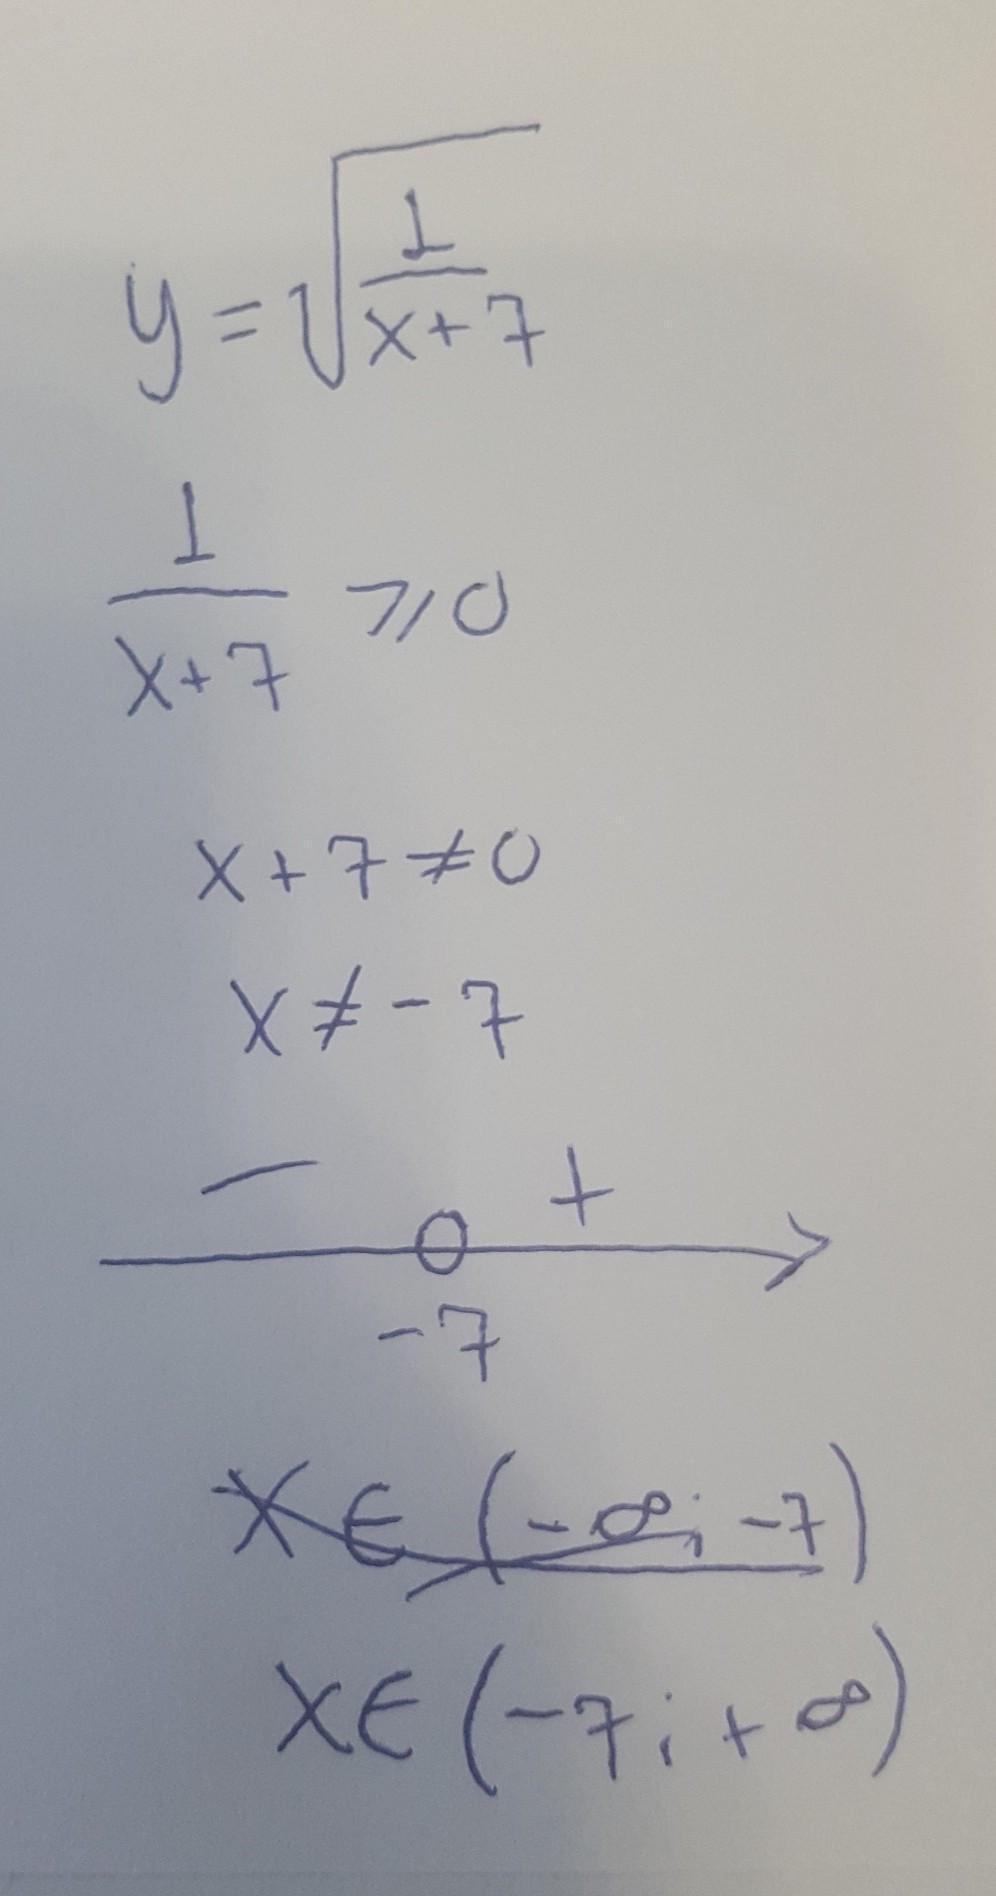 y = √(1/(x+7))
1/(x+7) ⩾ 0
x + 7 ≠ 0
x ≠ - 7
- +
-7
x ∈ (-∞; -7)
x ∈ (-7; +∞)